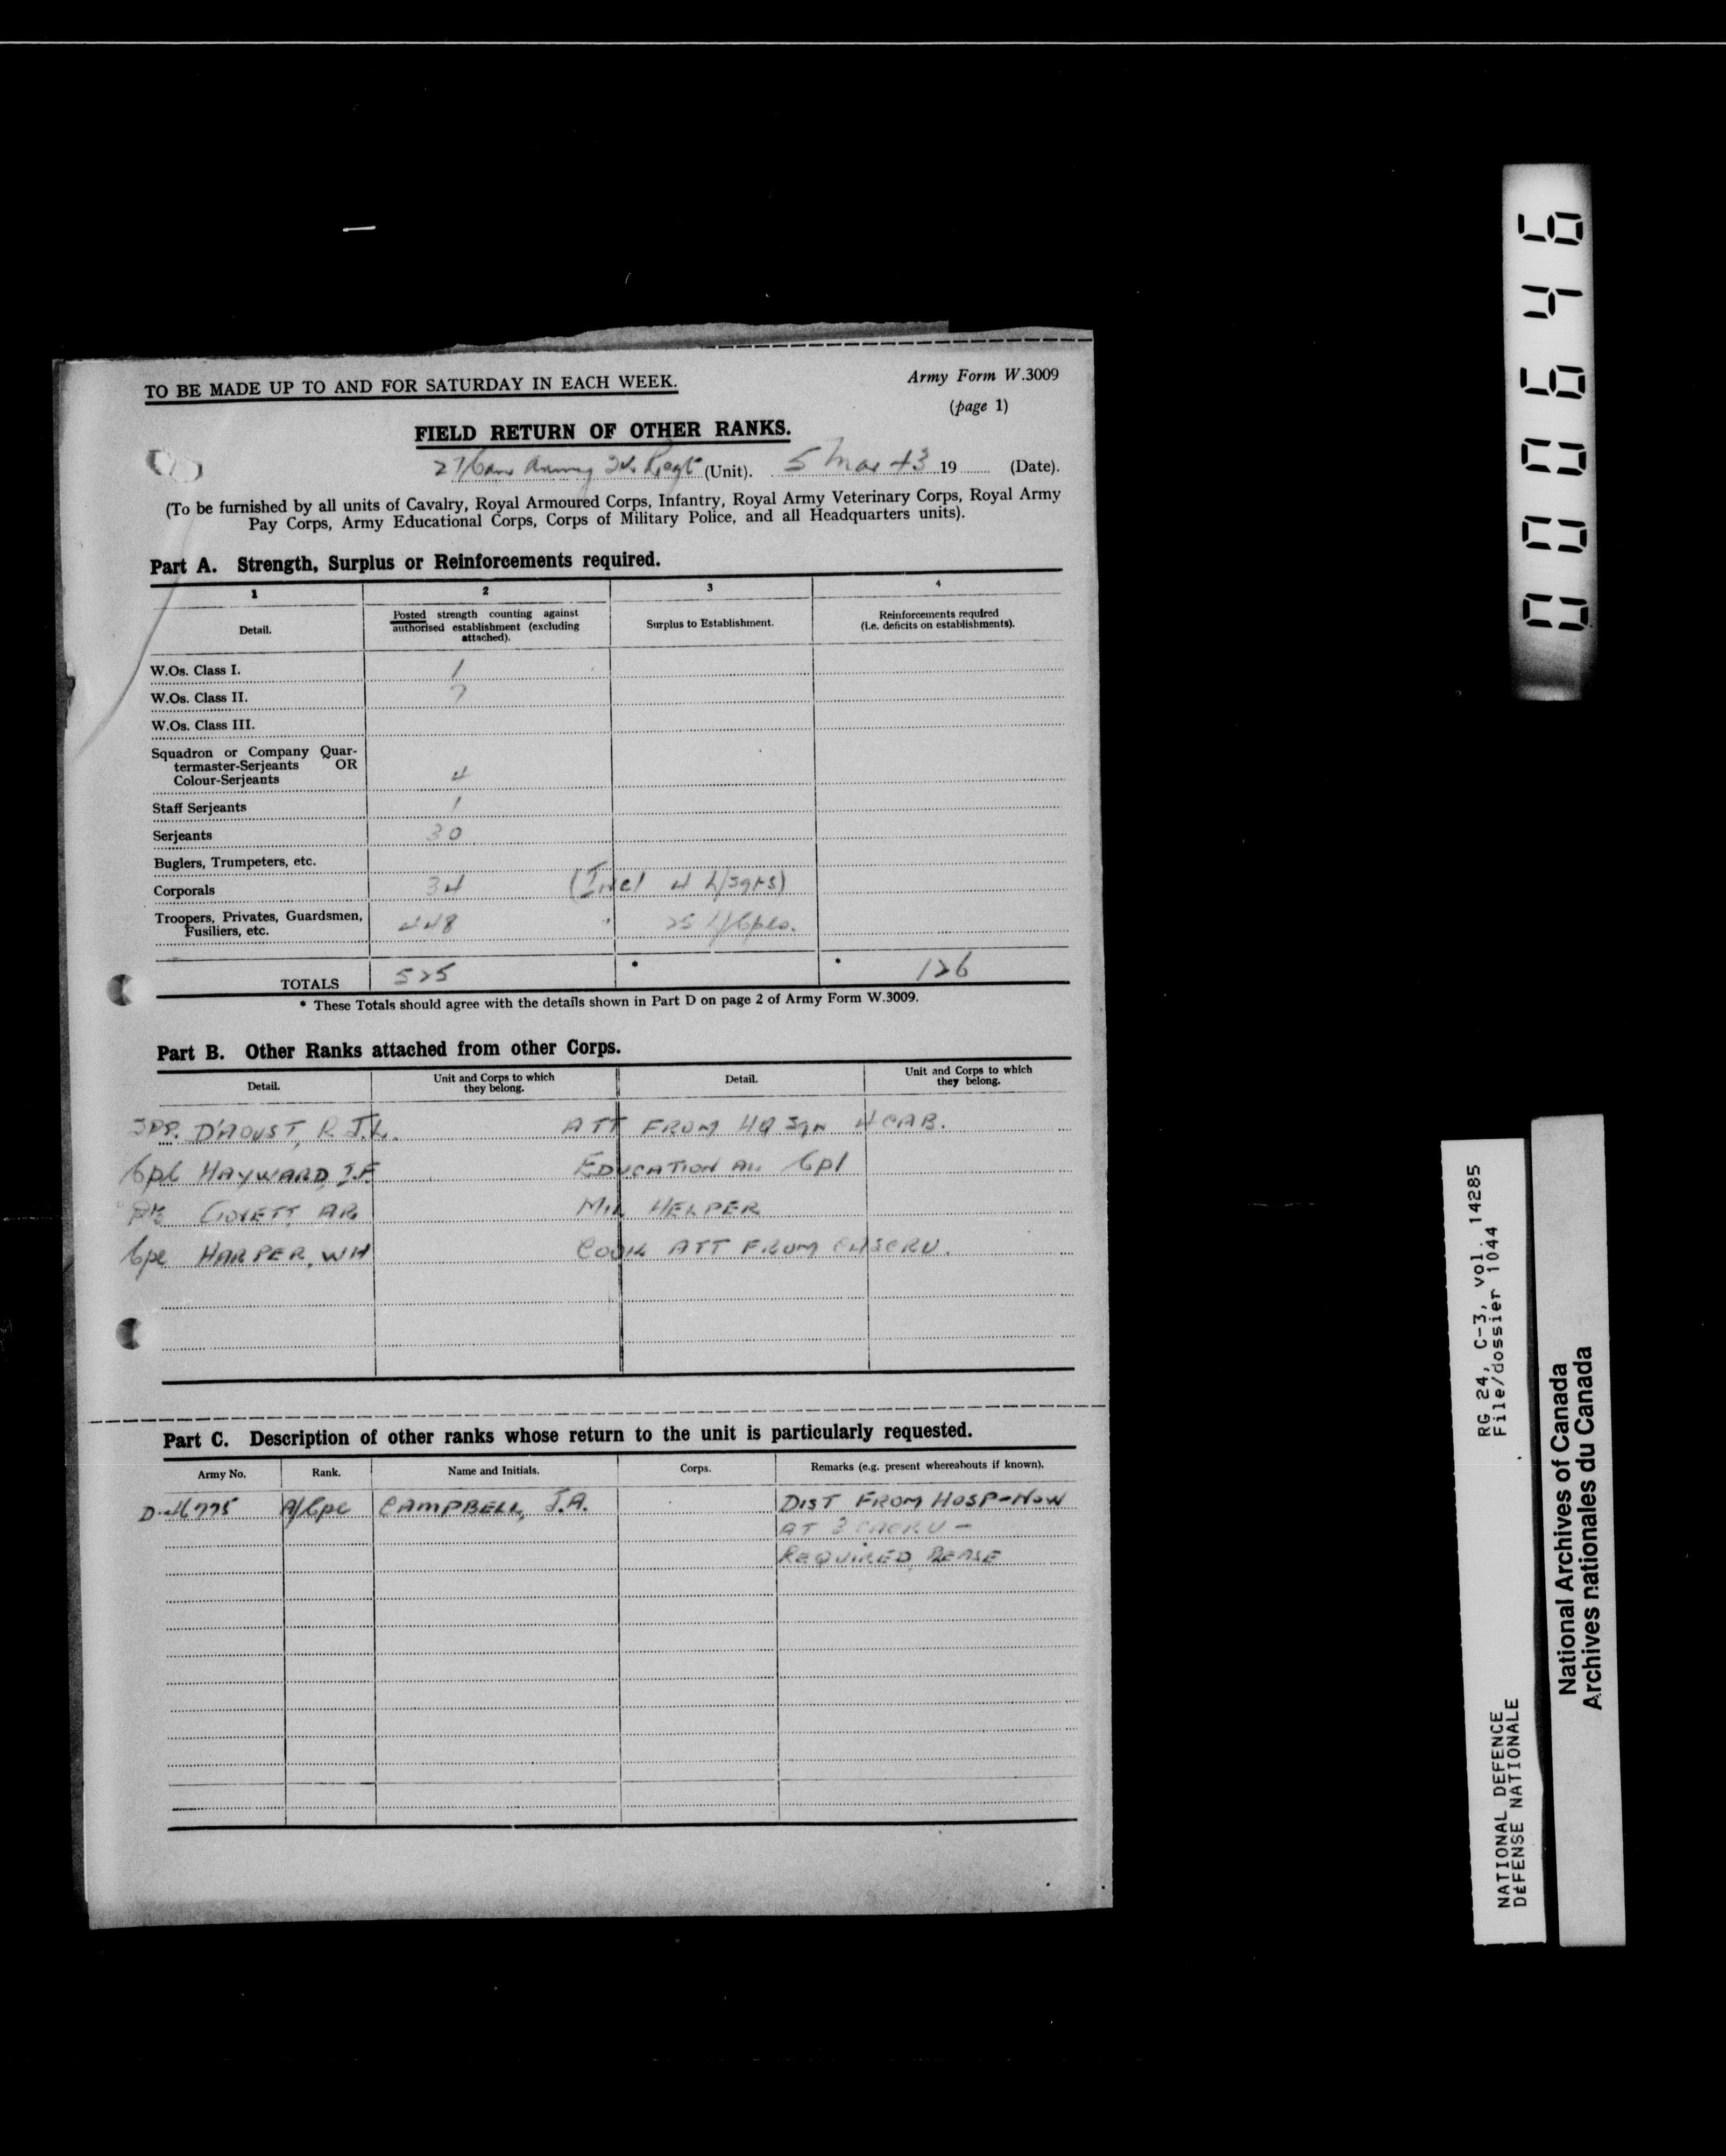 TO BE MADE UP TO AND FOR SATURDAY IN EACH WEEK.
Army Form W.3009
(page 1)
FIELD RETURN OF OTHER RANKS.
27 Can Army Tk Regt (Unit). 5 Mar 43 19 (Date).
(To be furnished by all units of Cavalry, Royal Armoured Corps, Infantry, Royal Army Veterinary Corps, Royal Army
Pay Corps, Army Educational Corps, Corps of Military Police, and all Headquarters units).
Part A. Strength, Surplus or Reinforcements required.
1 2 3 4
Detail.
Posted strength counting against
authorised establishment (excluding
attached).
Surplus to Establishment.
Reinforcements required
(i.e. deficits on establishments).
W.Os. Class I. 1
W.Os. Class II. 7
W.Os. Class III.
Squadron or Company Quar-
termaster-Serjeants OR
Colour-Serjeants 4
Staff Serjeants 1
Serjeants 30
Buglers, Trumpeters, etc.
Corporals 34 (Incl 4 L/Sgts)
Troopers, Privates, Guardsmen,
Fusiliers, etc. 448 " 25 L/Cpls.
TOTALS 525 * * 126
* These Totals should agree with the details shown in Part D on page 2 of Army Form W.3009.
Part B. Other Ranks attached from other Corps.
Detail.
Unit and Corps to which
they belong.
Detail.
Unit and Corps to which
they belong.
D'AOUST, R.J.L. ATT FROM HQ SQN 4 CAB.
Cpl HAYWARD, I.F. EDUCATION Cpl
AR HELPER
Cpl HARPER, WH COOK ATT FROM
Part C. Description of other ranks whose return to the unit is particularly requested.
Army No. Rank. Name and Initials. Corps. Remarks (e.g. present whereabouts if known).
D-46775 A/Cpl CAMPBELL, J.A. DIST FROM HOSP-NOW
AT 3 CACRU -
REQUIRED PLEASE
000646
RG 24, C-3, vol. 14285
File/dossier 1044
NATIONAL DEFENCE
DÉFENSE NATIONALE
National Archives of Canada
Archives nationales du Canada